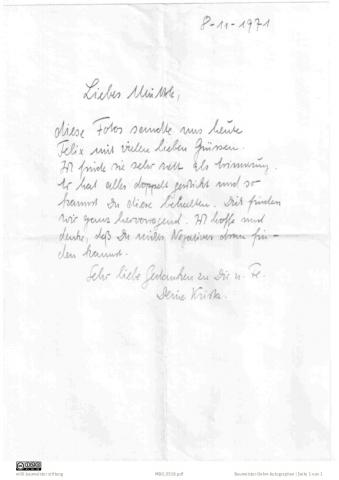 8-11-1971
Liebes
diese Fotos sandte uns heute
Felix mit vielen lieben Grüssen.
Ich finde sie sehr nett als Erinnerung.
Er hat alles doppelt geschickt und so
kannst Du diese behalten. Dich finden
wir ganz hervorragend. Ich hoffe und
denke, daß Du Negatives daran fin-
den kannst.
Sehr liebe Gedanken zu Dir u.
Deine Krista.
willi baumeister stiftung
Seite 1 von 1